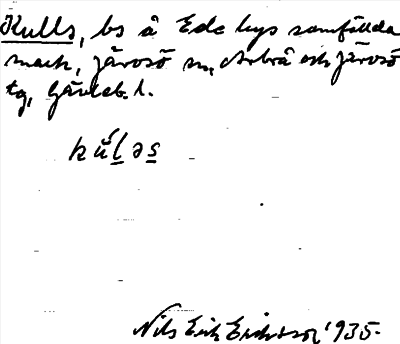 Kulls, bs å Ede bys samfällda
mark, Järvsö sn, Arbrå och Järvsö
tg, Gävleb. l.
kúləs
Nils Erik Eriksson 1935.